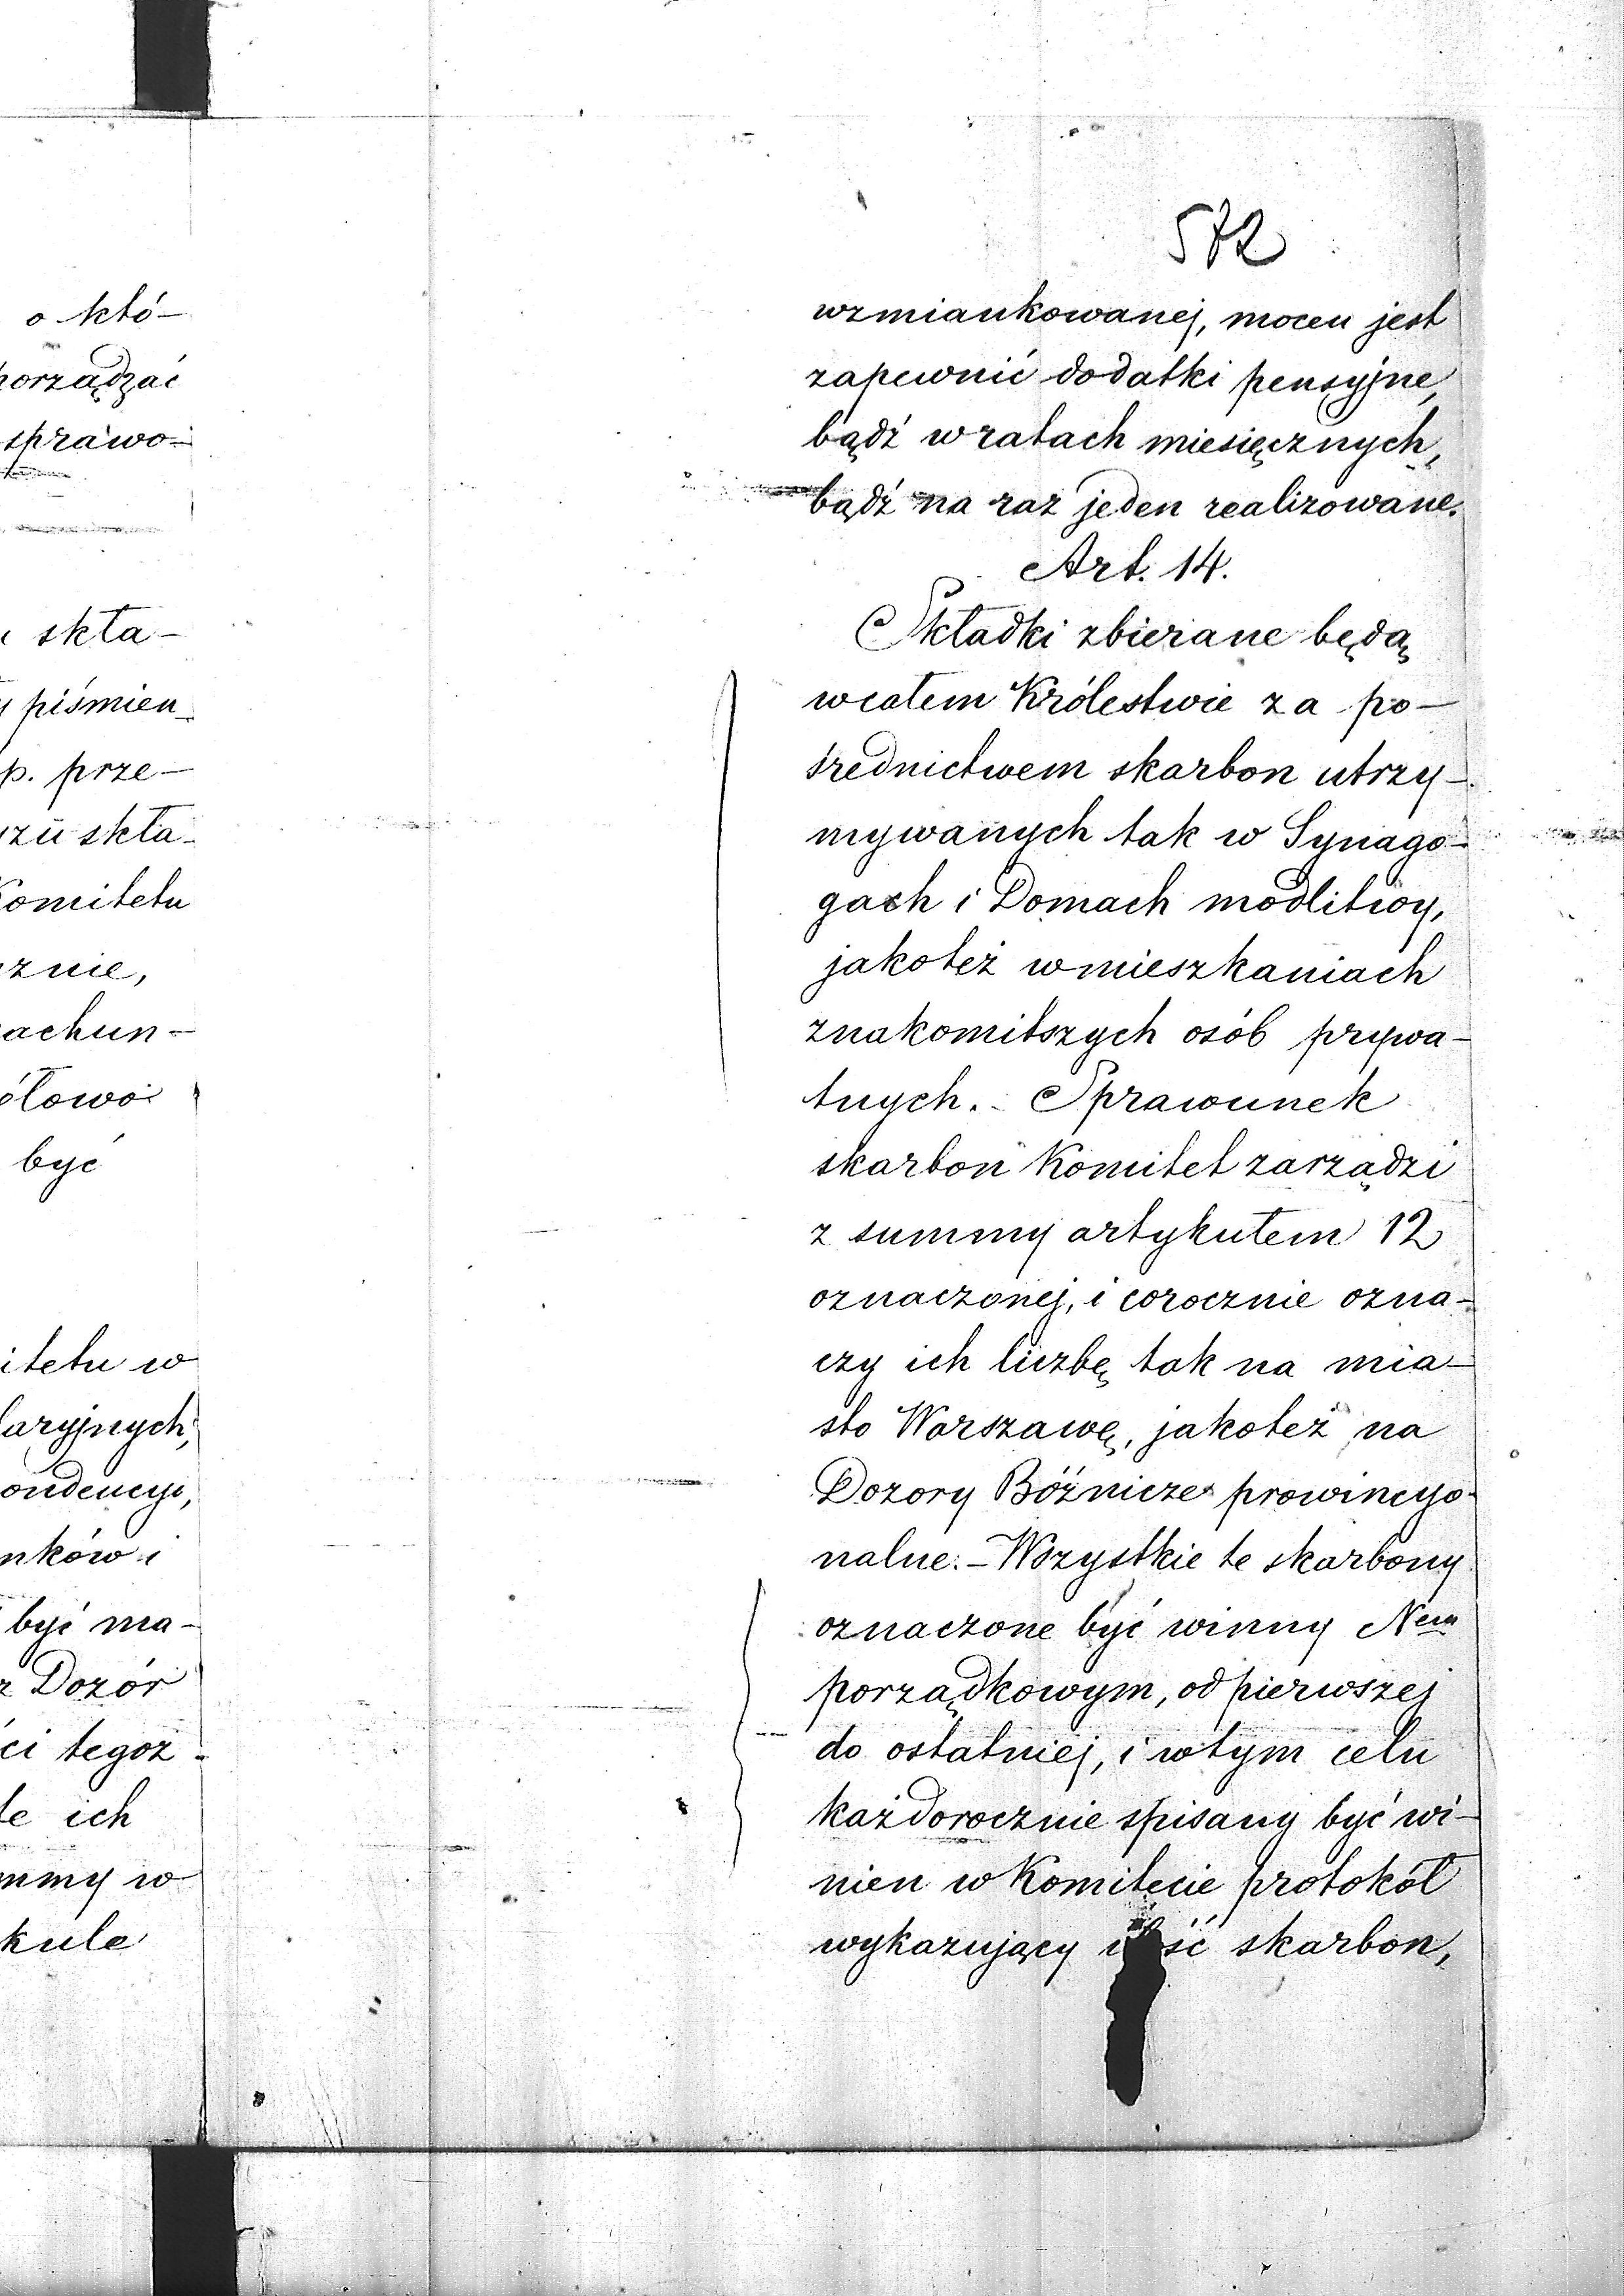 o któ-
porządzać
sprawo-
skła-
piśmien-
p. prze-
skła-
Komitetu
znie,
achun-
ółowo
być
itetu w
laryjnych,
ondencyi,
nków i
być ma-
z Dozór
ci tegoż
le ich
mmy w
kule
572
wzmiankowanej, mocen jest
zapewnić dodatki pensyjne,
bądź w ratach miesięcznych,
bądź na raz jeden realizowane.
Art. 14.
Składki zbierane będą
w całem Królestwie za po-
średnictwem skarbon utrzy-
mywanych tak w Synago-
gach i Domach modlitwy,
jakoteż w mieszkaniach
znakomitszych osób prywa-
tnych. - Sprawunek
skarbon Komitet zarządzi
z summy artykułem 12
oznaczonej, i corocznie ozna-
czy ich liczbę tak na mia-
sto Warszawę, jakoteż na
Dozory Bóźnicze prowincyo-
nalne. - Wszystkie te skarbony
oznaczone być winny Nem
porządkowym, od pierwszej
do ostatniej, i w tym celu
każdorocznie spisany być wi-
nien w Komitecie protokół
wykazujący skarbon,